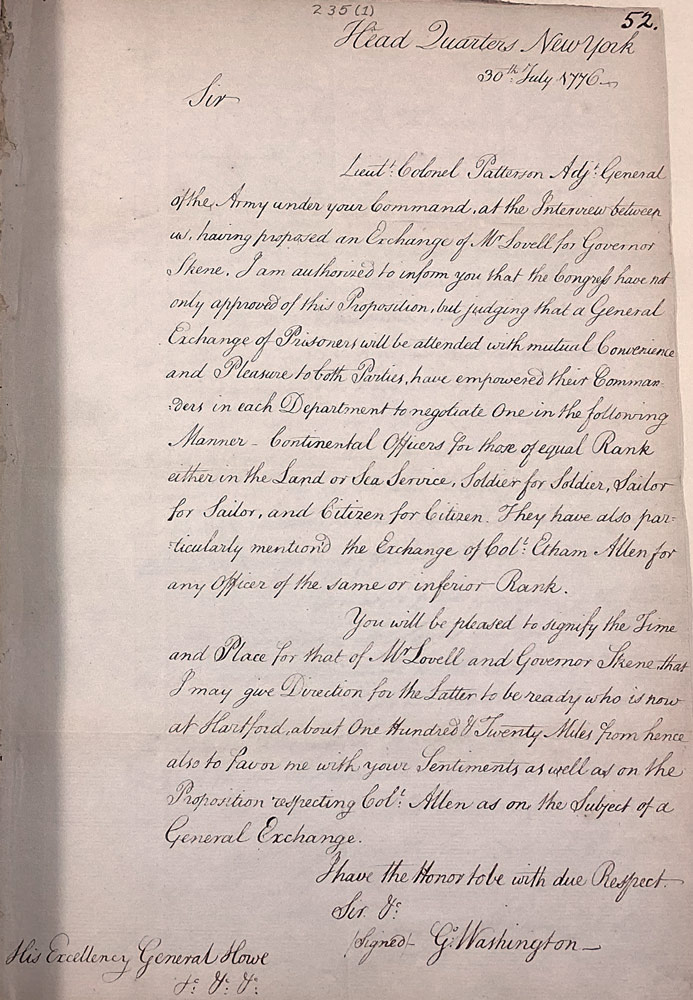 235(1)
52.
Head Quarters New York
30th July 1776
Sir
Lieut.t Colonel Patterson Adj.t General
of the Army under your Command, at the Interview between
us, having proposed an Exchange of Mr Lovell for Governor
Skene. I am authorized to inform you that the Congress have not
only approved of this Proposition, but judging that a General
Exchange of Prisoners will be attended with mutual Convenience
and Pleasure to both Parties, have empowered their Comman-
:ders in each Department to negotiate One in the following
Manner - Continental Officers for those of equal Rank
either in the Land or Sea Service, Soldier for Soldier, Sailor
for Sailor, and Citizen for Citizen. They have also par-
:ticularly mention'd the Exchange of Col.l Etham Allen for
any Officer of the same or inferior Rank.
You will be pleased to signify the Time
and Place for that of Mr Lovell and Governor Skene, that
I may give Direction for the Latter to be ready who is now
at Hartford, about One Hundred & Twenty Miles from hence
also to favor me with your Sentiments as well as on the
Proposition respecting Col.l Allen as on the Subject of a
General Exchange.
I have the Honor to be with due Respect.
Sir. &c:
(signed) Go: Washington
His Excellency General Howe
&c: &c: &c: